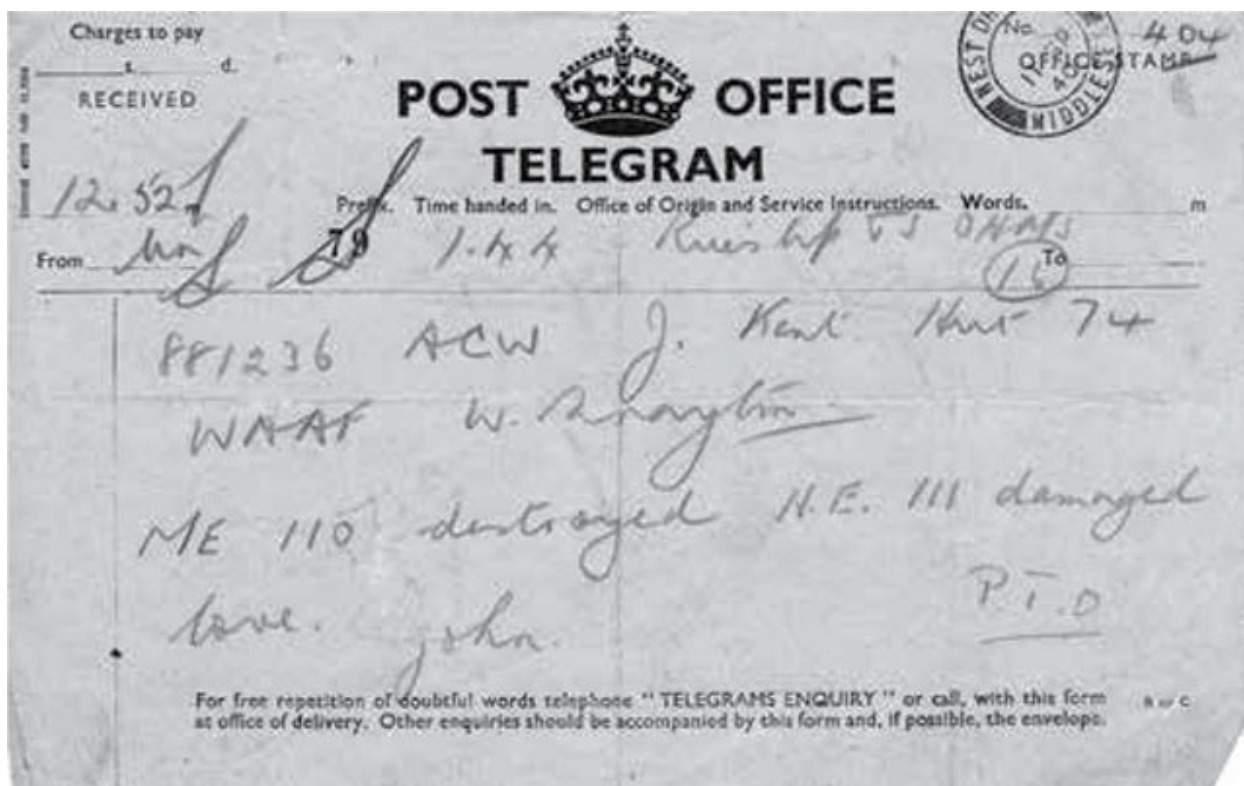 Charges to pay
s. d.
RECEIVED
POST OFFICE
TELEGRAM
No. 404
OFFICE STAMP
WEST DR MIDDLESE
11
40
12.52
Prefix. Time handed in. Office of Origin and Service Instructions. Words.
m
From
79 1.44 Ruislip
To
16
881236 ACW J. Kent Hut 74
WAAF W. Drayton
ME 110 destroyed H.E. 111 damaged
love. John.
P.T.O
For free repetition of doubtful words telephone "TELEGRAMS ENQUIRY" or call, with this form
at office of delivery. Other enquiries should be accompanied by this form and, if possible, the envelope.
B or C